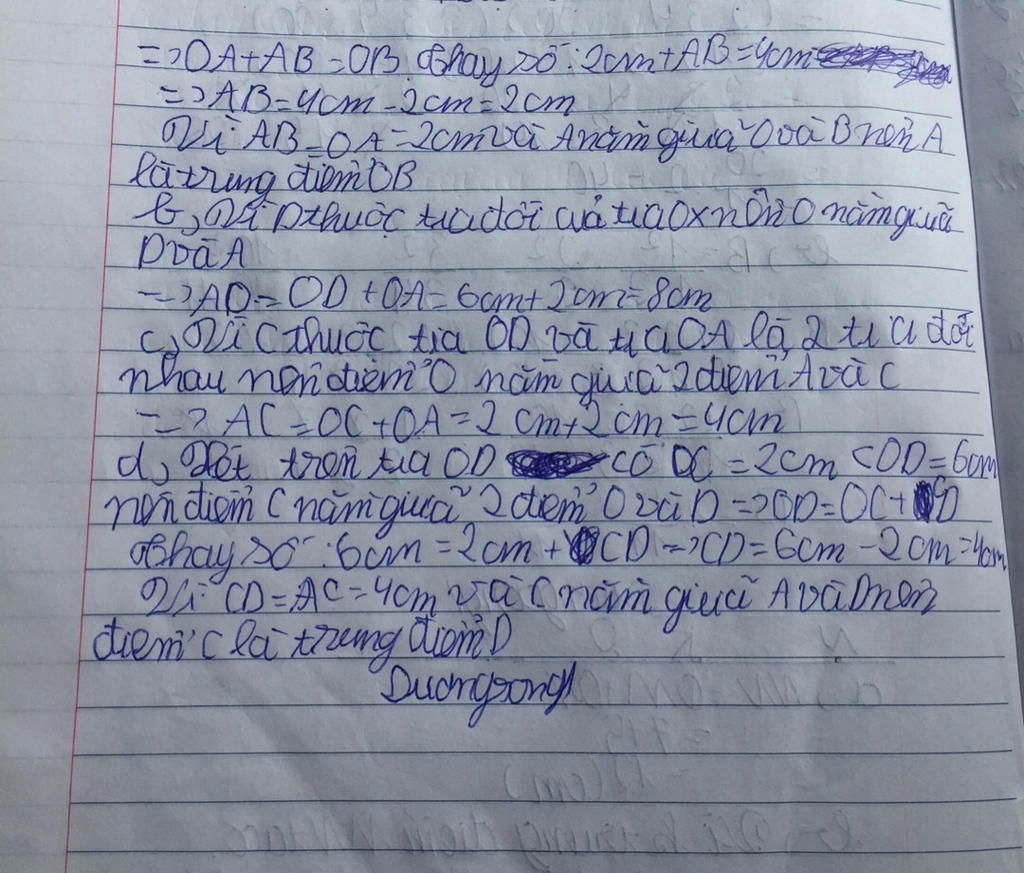 => OA+AB=OB. Thay số: 2cm+AB=4cm
=> AB=4cm-2cm=2cm
Vì AB=OA=2cm và A nằm giữa O và B nên A
là trung điểm OB
b, Vì D thuộc tia đối của tia Ox nên O nằm giữa
D và A
=> AD=OD+OA=6cm+2cm=8cm
c, Vì C thuộc tia OD và tia OA là 2 tia đối
nhau nên điểm O nằm giữa 2 điểm A và C
=> AC=OC+OA=2cm+2cm=4cm
d, Xét trên tia OD có OC=2cm<OD=6cm
nên điểm C nằm giữa 2 điểm O và D => OD=OC+CD
Thay số: 6cm=2cm+CD => CD=6cm-2cm=4cm
Vì CD=AC=4cm và C nằm giữa A và D nên
điểm C là trung điểm D
Duongsong